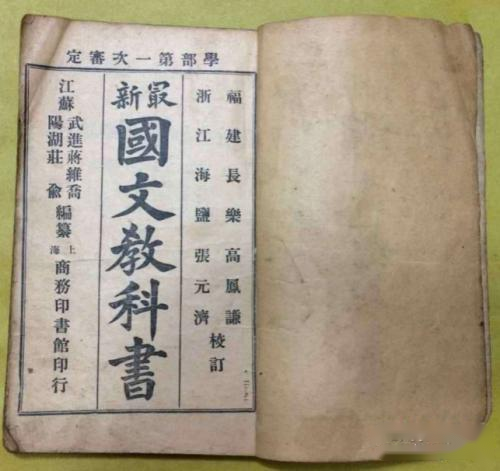 學部第一次審定
福建長樂高鳳謙
浙江海鹽張元濟
校訂
最新
國文教科書
江蘇
武進蔣維喬
陽湖莊俞
編纂
上海
商務印書館印行